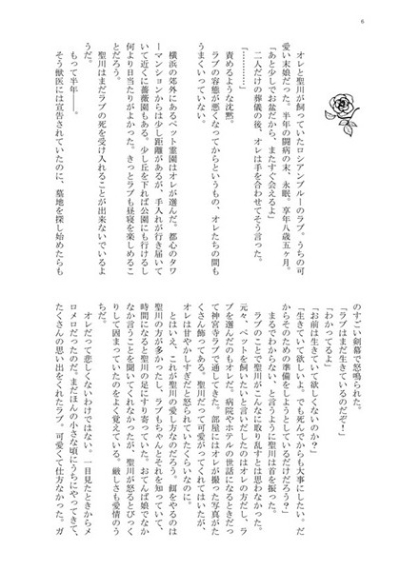 6
オレと聖川が飼っていたロシアンブルーのラブ。うちの可
愛い末娘だった。半年の闘病の末、永眠。享年八歳五ヶ月。
「あと少しでお盆だから、またすぐ会えるよ」
二人だけの葬儀の後、オレは手を合わせてそう言った。
「…………」
責めるような沈黙。
ラブの容態が悪くなってからというもの、オレたちの間も
うまくいっていない。
横浜の郊外にあるペット霊園はオレが選んだ。都心のタワ
ーマンションからは少し距離があるが、手入れが行き届いて
いて近くに薔薇園もある。少し丘を下れば公園にも行けるし
何より日当たりがよかった。きっとラブも昼寝を楽しめるこ
とだろう。
聖川はまだラブの死を受け入れることが出来ないでいるよ
うだ。
もって半年──。
そう獣医には宣告されていたのに、墓地を探し始めたらも
のすごい剣幕で怒鳴られた。
「ラブはまだ生きているのだぞ！」
「わかってるよ」
「お前は生きていて欲しくないのか？」
「生きていて欲しいよ。でも死んでからも大事にしたい。だ
からそのための準備をしようとしているだけだろう？」
まるでわからない、と言うように聖川は首を振った。
ラブのことで聖川がこんなに取り乱すとは思わなかった。
元々、ペットを飼いたいと言いだしたのはオレの方だし、ラ
ブを選んだのもオレだ。病院やホテルの世話になるときだっ
て神宮寺ラブで通してきた。部屋にはオレが撮った写真がた
くさん飾ってある。聖川だって可愛がってくれてはいたが、
オレは甘やかしすぎだと怒られていたくらいなのに。
とはいえ、これが聖川の愛し方なのだろう。餌をやるのは
聖川の方が多かったし、ラブもちゃんとそれを知っていて、
時間になると聖川の足にすり寄っていた。おてんば娘でなか
なか言うことを聞いてくれなかったが、聖川が怒るとびっく
りして固まっていたのをよく覚えている。厳しさも愛情のう
ちだ。
オレだって悲しくないわけではない。一目見たときからメ
ロメロだったのだ。まだほんの小さな頃にうちにやってきて、
たくさんの思い出をくれたラブ。可愛くて仕方なかった。ガ